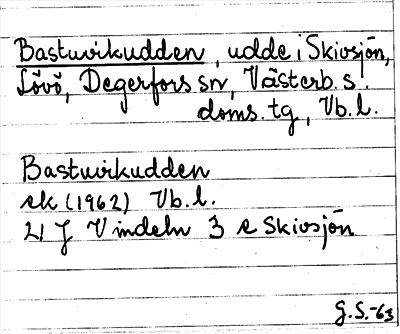 Bastuvikudden, udde i Skivsjön,
Lövö, Degerfors sn, Västerb. s.
doms. tg, Vb. l.
Bastuvikudden
ek (1962) Vb. l.
21 J Vindeln 3 e Skivsjön
G.S.-63